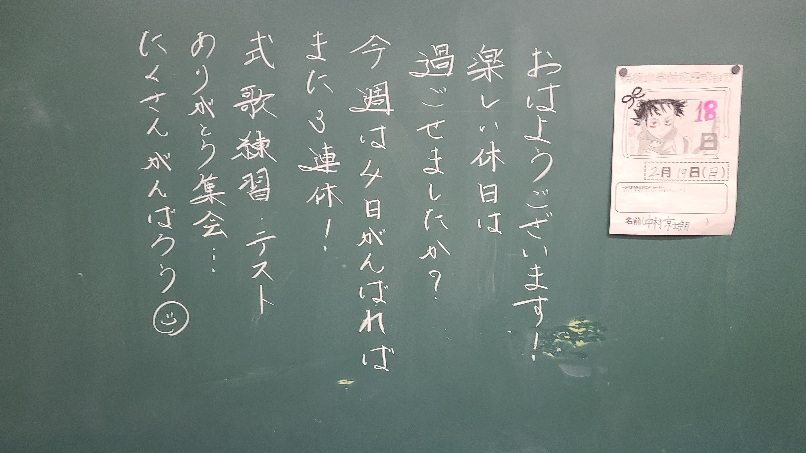 おはようございます！
楽しい休日は
過ごせましたか？
今週は4日がんばれば
まに3連休！
式 歌練習・テスト
ありがとう集会…
にくさんがんばろう
18
日
2月19日(日)
名前(中村